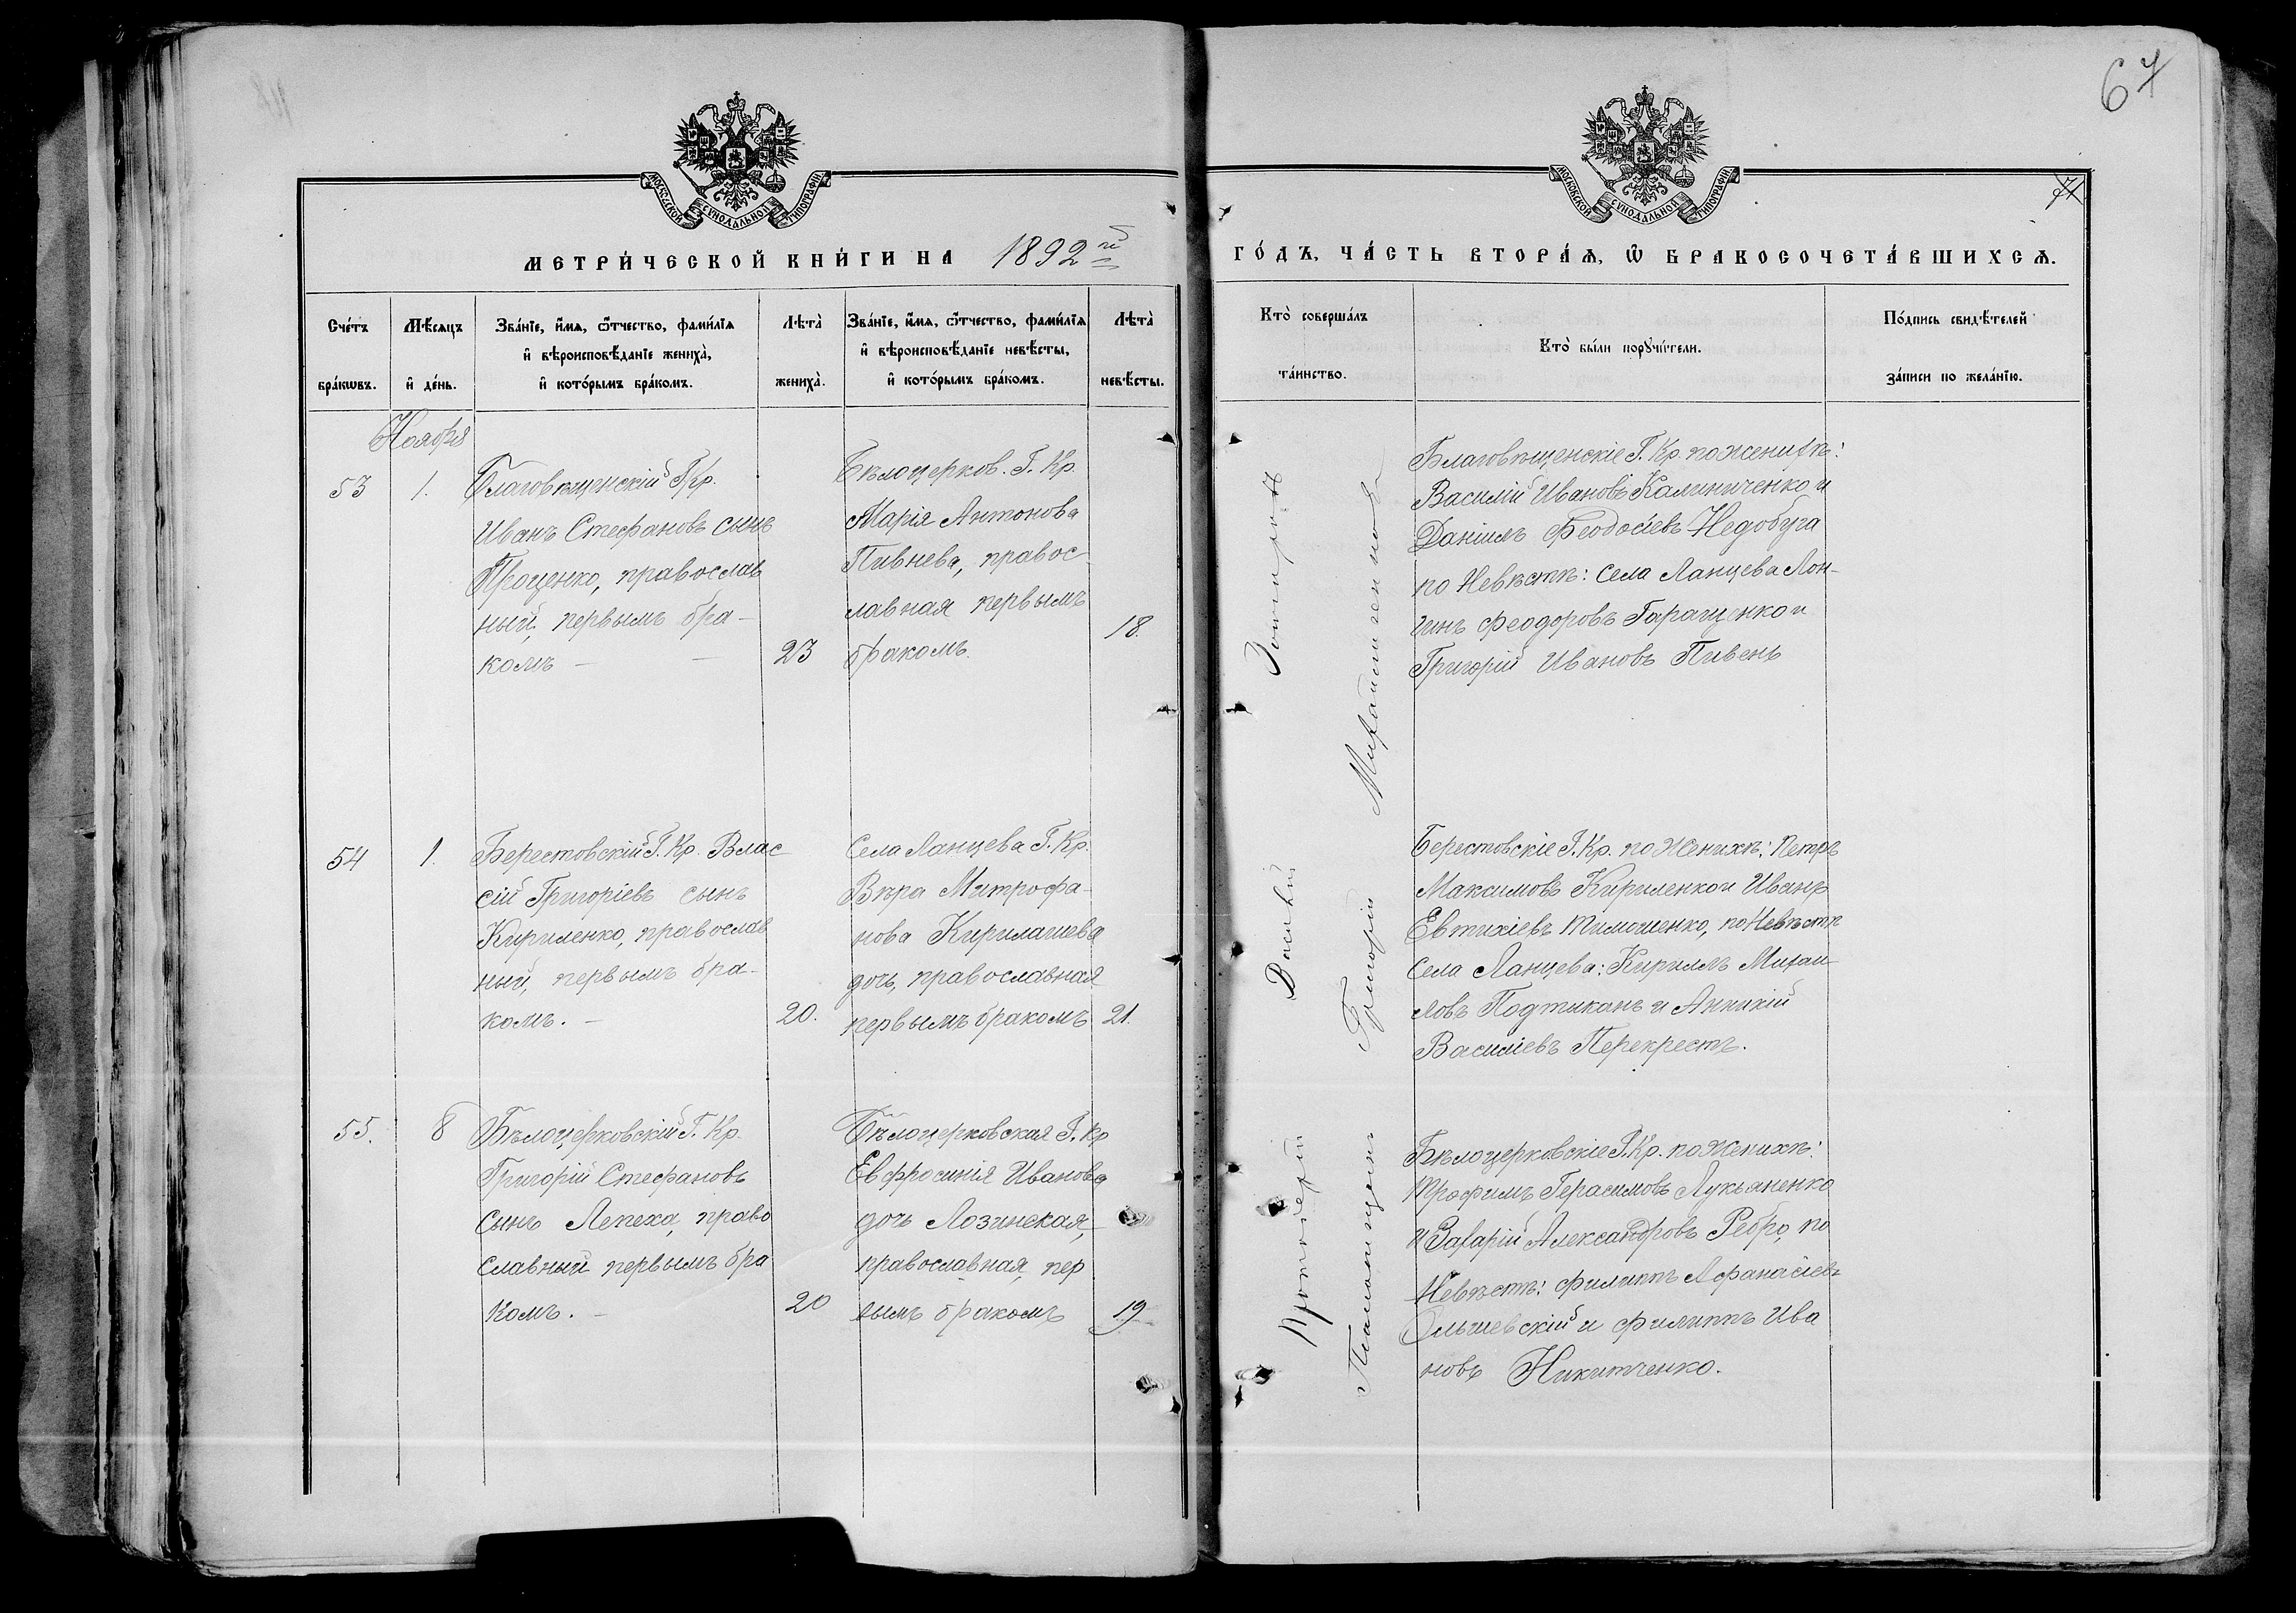 67
МОСКОВСКОЙ СУНОДАЛЬНОЙ ТИПОГРАФІИ
МОСКОВСКОЙ СУНОДАЛЬНОЙ ТИПОГРАФІИ
МЕТРИ́ЧЕСКОЙ КНИ́ГИ НА 1892й
ГО́ДЪ, ЧА́СТЬ ВТОРА́Ѧ, Ѡ҆ БРАКОСОЧЕТА́ВШИХСѦ.
Сче́тъ бра́кѡвъ.
Мѣ́сяцъ и҆ де́нь.
Зва́нїе, и҆́мѧ, ѻ҆́тчество, фами́лїѧ
и҆ вѣроисповѣ́данїе жениха̀,
и҆ кото́рымъ бра́комъ.
Лѣта̀ жениха̀.
Зва́нїе, и҆́мѧ, ѻ҆́тчество, фами́лїѧ
и҆ вѣроисповѣ́данїе невѣ́сты,
и҆ кото́рымъ бра́комъ.
Лѣта̀ невѣ́сты.
Кто̀ соверша́лъ
та́инство.
Кто̀ бы́ли порꙋчи́тели.
По́дпись свидѣ́телей
за́писи по жела́нїю.
Ноября
53
1.
Благовѣщенскій Г. Кр.
Иванъ Стефановъ сынъ
Проценко, православ
ный, первымъ бра-
комъ —
23
Бѣлоцерков. Г. Кр.
Марія Антонова
Пивнева, правос
лавная первымъ
бракомъ.
18.
Благовѣщенскіе Г. Кр. по женихѣ:
Василій Ивановъ Калиниченко и
Даніилъ Феодосіевъ Недобуга
по Невѣстѣ: села Ланцева Лон-
гинъ Феодоровъ Гаращенко и
Григорій Ивановъ Пивень
54
1.
Берестовскій Г. Кр. Влас
сій Григоріевъ сынъ
Кириленко, православ
ный, первымъ бра-
комъ. —
20.
Села Ланцева Г. Кр.
Вѣра Митрофа-
нова Кирилашева
дочь, православная
первымъ бракомъ
21.
Берестовскіе Г. Кр. по Женихѣ: Петръ
Максимовъ Кириленко и Иванъ
Евтихіевъ Тимошенко, по Невѣстѣ
Села Ланцева: Кириллъ Михаи
ловъ Подтыканъ и Аникій
Василіевъ Перекрестъ.
55.
8
Бѣлоцерковскій Г. Кр.
Григорій Стефановъ
сынъ Лепеха, право
славный первымъ бра
комъ. —
20
Бѣлоцерковская Г. Кр
Евфросинія Иванова
дочь Лозинская,
православная, пер
вымъ бракомъ
19
Бѣлоцерковскіе Г. Кр. по Женихѣ:
Трофимъ Герасимовъ Лукьяненко
и Захарій Александровъ Ребро, по
Невѣстѣ: Филиппъ Афанасіевъ
Ольшевскій и Филиппъ Ива
новъ Никитченко.
Протоіерей Василій
Григорій